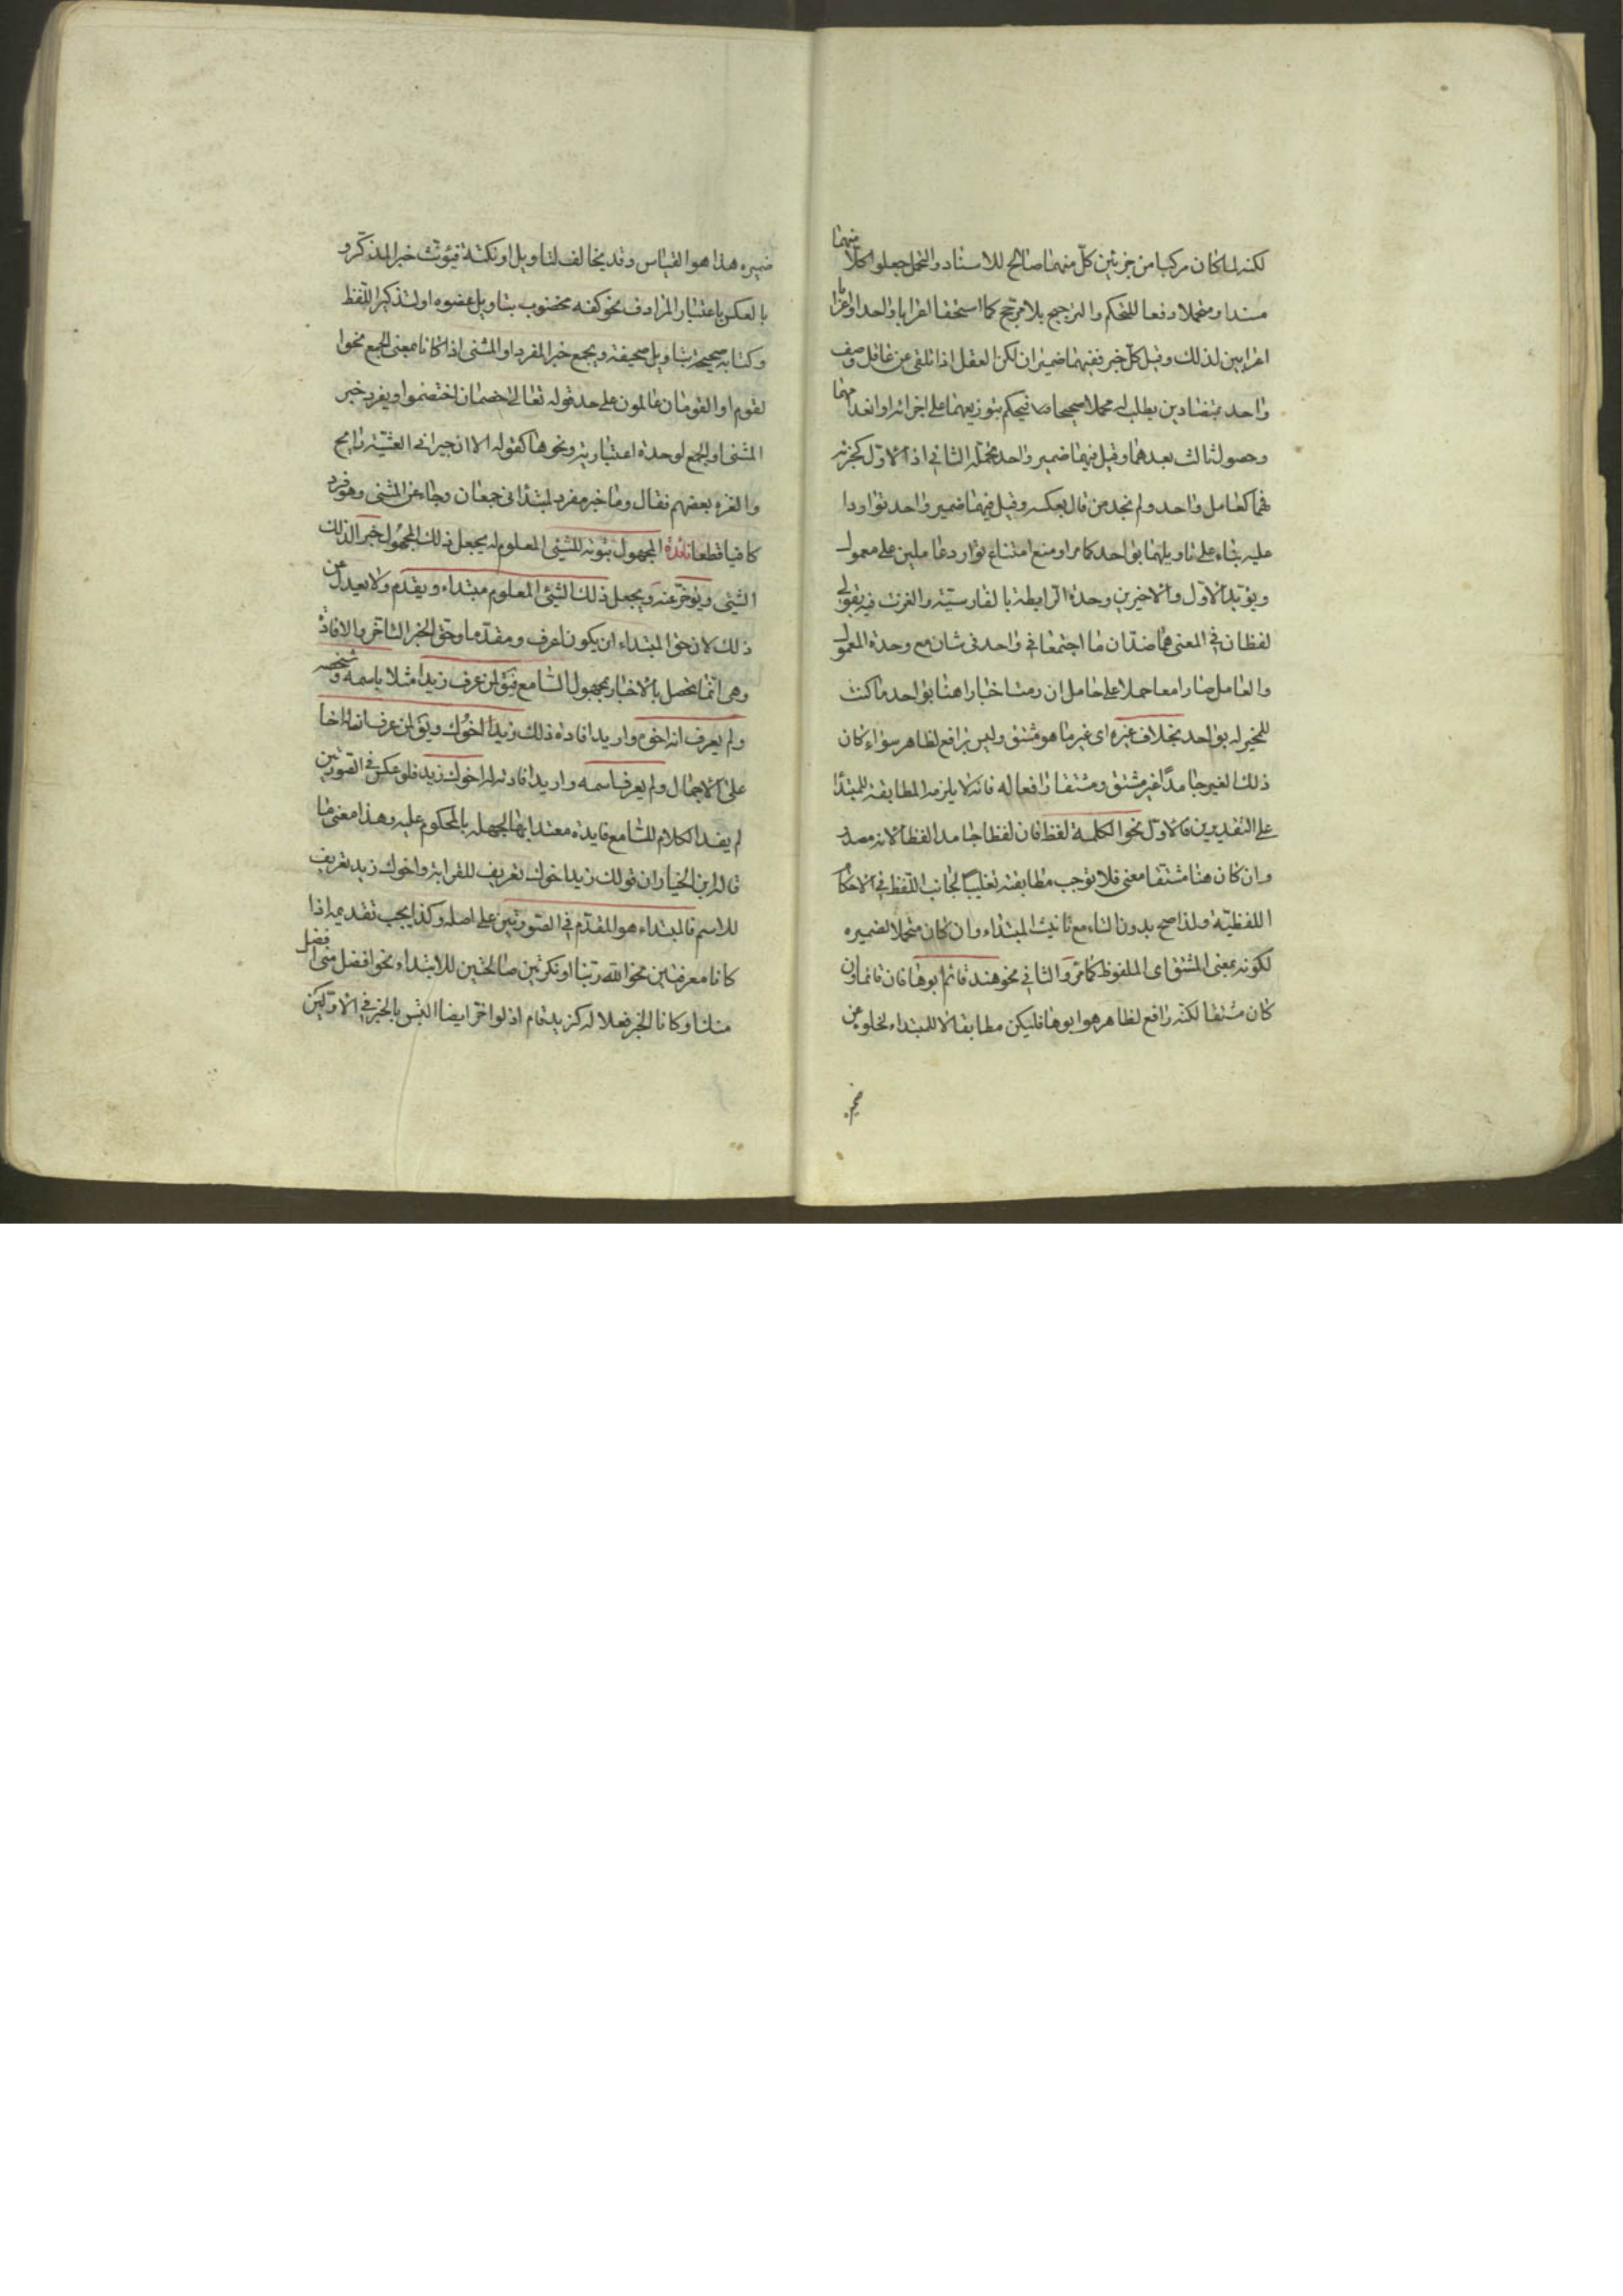 لكنه لما كان مركبا من جزئين كل منهما صالح للاسناد والتحمل جعلوا كلا منهما
مسندا ومتحملا دفعا للتحكم والترجيح بلا مرجح كما استحقا اعرابا واحدا او اعرابا
اعرابين لذلك وقيل كل خبر ففيهما ضميران لكن العقل اذا تلقى عن عاقل وصف
واحد بمتضادين يطلب له محملا صحيحا فيحكم بتوزيعهما على اجزائه او انعدامهما
وحصول ثالث بعدهما وقيل فيهما ضمير واحد تحمله الثاني اذ الاول كجزئه
فهما كعامل واحد ولم نجد من قال بعكسه وقيل فيهما ضمير واحد تواردا
عليه بناء على تاويلهما بواحد كما مر او منع امتناع توارد عاملين على معمول
ويؤيد الاول والاخيرين وحدة الرابطة بالفارسية والغزت فيه بقولي
لفظان في المعنى هما ضدان ما اجتمعا في واحد في شان مع وحدة المعمول
والعامل صارا معا حملا على حامل ان رمت اخبارا هنا بواحد ما كنت
للمخبر له بواحد بخلاف غيره اى غير ما هو مشتق وليس برافع لظاهر سواء كان
ذلك الغير جامدا غير مشتق ومشتقا رافعا له فانه لا يلزمه المطابقة للمبتدا
على التقديرين فالاول نحو الكلمة لفظ فان لفظا جامد لفظا لانه مصدر
وان كان هنا مشتقا معنى فلا توجب مطابقته تغليبا لجانب اللفظ في الاحكام
اللفظية ولذا صح بدون التاء مع تانيث المبتداء وان كان متحملا لضميره
لكونه بمعنى المشتق اى الملفوظ كما مر والثاني نحو هند قائم ابوها فان قائما وان
كان مشتقا لكنه رافع لظاهر هو ابوها فليكن مطابقا له لا للمبتداء لخلوه عن
ضميره
ضميره هذا هو القياس وقد يخالف لتاويل او نكتة فيؤنث خبر المذكر و
بالعكس باعتبار المرادف نحو كفه مخضوب بتاويل عضوه او لتذكير اللفظ
وكتابه صحيحة بتاويل صحيفته ويجمع خبر المفرد او المثنى اذا كانا بمعنى الجمع نحو ا
لقوم او القومان عالمون على حد قوله تعالى خصمان اختصموا ويفرد خبر
المثنى او الجمع لوحدة اعتبارية ونحوها كقوله الا ان جيراني العشية رايح
والغزه بعضهم فقال وما خبر مفرد لمبتدأ اتى جمعان وجاء عن المثنى وهو فرد
كافيا قطعا فائدة المجهول ثبوته للشئ المعلوم له يجعل ذلك المجهول خبرا لذلك
الشئ ويؤخر عنه ويجعل ذلك الشئ المعلوم مبتداء ويقدم ولا يعدل عن
ذلك لان حق المبتداء ان يكون اعرف ومقدما وحق الخبر التاخر والافادة
وهي انما تحصل بالاخبار بمجهول السامع فيق لمن عرف زيدا مثلا باسمه وشخصه
ولم يعرف انه اخوه واريد افادة ذلك زيد اخوك ويق لمن عرف ان له اخا
على الاجمال ولم يعرف اسمه واريد افادته له اخوك زيد فلو عكس في الصورتين
لم يفد الكلام للسامع فايدة معتدا بها لجهله بالمحكوم عليه وهذا معنى ما
قاله ابن الخياز ان قولك زيد اخوك تعريف للقرابة واخوك زيد تعريف
للاسم فالمبتداء هو المقدم في الصورتين على اصله وكذا يجب تقديمه اذا
كانا معرفتين نحو الله ربنا او نكرتين صالحتين للابتداء نحو افضل مني افضل
منك او كانا الخبر فعلا له كزيد قام اذ لو اخر ايضا التبس بالخبر في الاولين